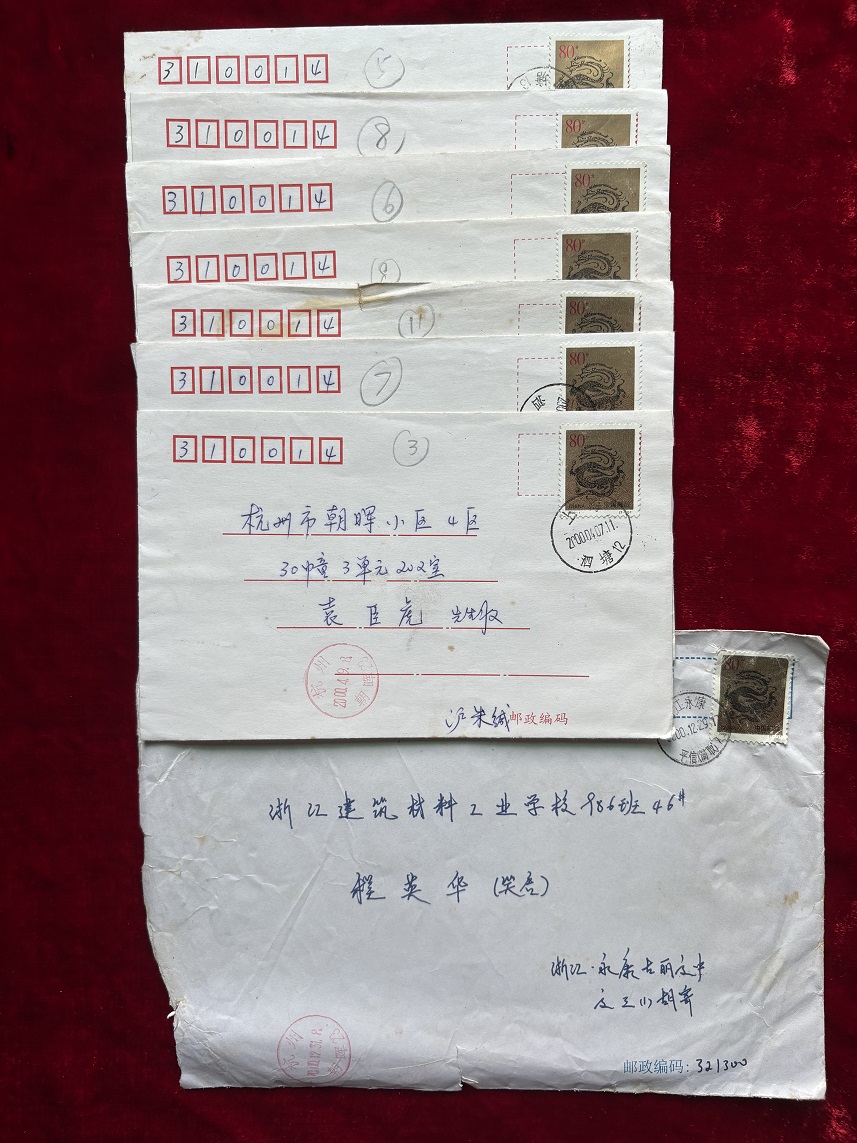 310014 ⑤ 80
310014 ⑧ 80
310014 ⑥ 80
310014 ⑨ 80
310014 ⑪ 80
310014 ⑦ 80
310014 ③ 80
杭州市朝晖小区4区
2000.04.07.11
泗塘12
30幢3单元202室
袁臣虎 先生收
杭州
沪朱缄 邮政编码
80
浙江建筑材料工业学校986班46#
程英华(笑启)
浙江·永康古丽文中
胡寄
杭州
邮政编码:321300